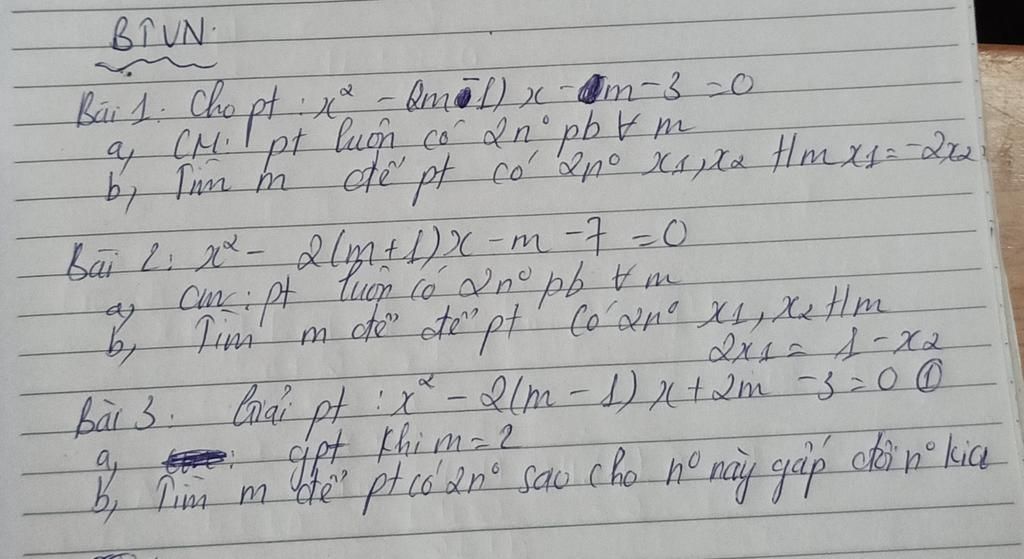 BTVN.
Bài 1: Cho pt: x² - (2m-1)x - m-3=0
a, CM: pt luôn có 2n° pb ∀ m
b, Tìm m để pt có 2n° x1, x2 t/m x1=-2x2
Bài 2: x² - 2(m+1)x - m - 7 = 0
a, cm: pt luôn có 2n° pb ∀ m
b, Tìm m để để pt có 2n° x1, x2 t/m
2x1 = 1-x2
Bài 3: Giải pt: x² - 2(m-1)x + 2m - 3=0 ①
a, gpt khi m=2
b, Tìm m để pt có 2n° sao cho n° này gấp đôi n° kia